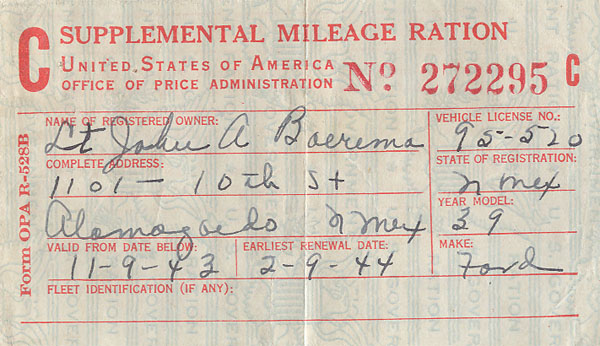 C SUPPLEMENTAL MILEAGE RATION
UNITED STATES OF AMERICA
OFFICE OF PRICE ADMINISTRATION No 272295 C
Form OPA R-528B
NAME OF REGISTERED OWNER:
Lt John A Boerema
COMPLETE ADDRESS:
1101 - 10th St
Alamogordo N Mex
VALID FROM DATE BELOW:
11-9-43
EARLIEST RENEWAL DATE:
2-9-44
FLEET IDENTIFICATION (IF ANY):
VEHICLE LICENSE NO.:
95-520
STATE OF REGISTRATION:
N Mex
YEAR MODEL:
39
MAKE:
Ford